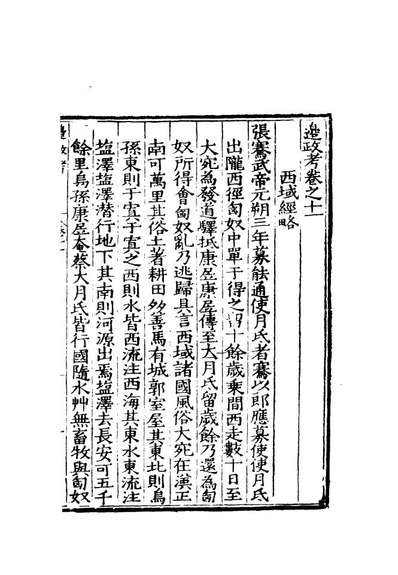 邉政考卷之十一
西域經略
張騫武帝元朔三年募能通使月氏者騫以郎應募使月氏
出隴西徑匈奴中單于得之留十餘歲乘間西走數十日至
大宛為發道驛抵康居康居傳至大月氏留歲餘乃還為匈
奴所得會匈奴亂乃逃歸具言西域諸國風俗大宛在漢正
南可萬里其俗土著耕田多善馬有城郭室屋其東北則烏
孫東則于寘于寘之西則水皆西流注西海其東水東流注
塩澤塩澤潜行地下其南則河源出焉塩澤去長安可五千
餘里烏孫康居奄蔡大月氏皆行國隨水艸無畜牧與匈奴
邉政考